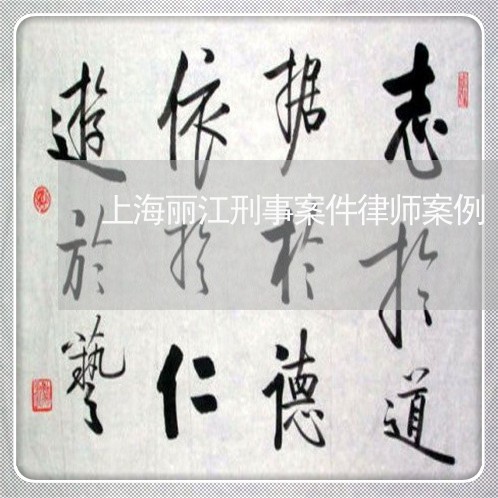 志於道
据於德
依於仁
遊於藝
上海丽江刑事案件律师案例